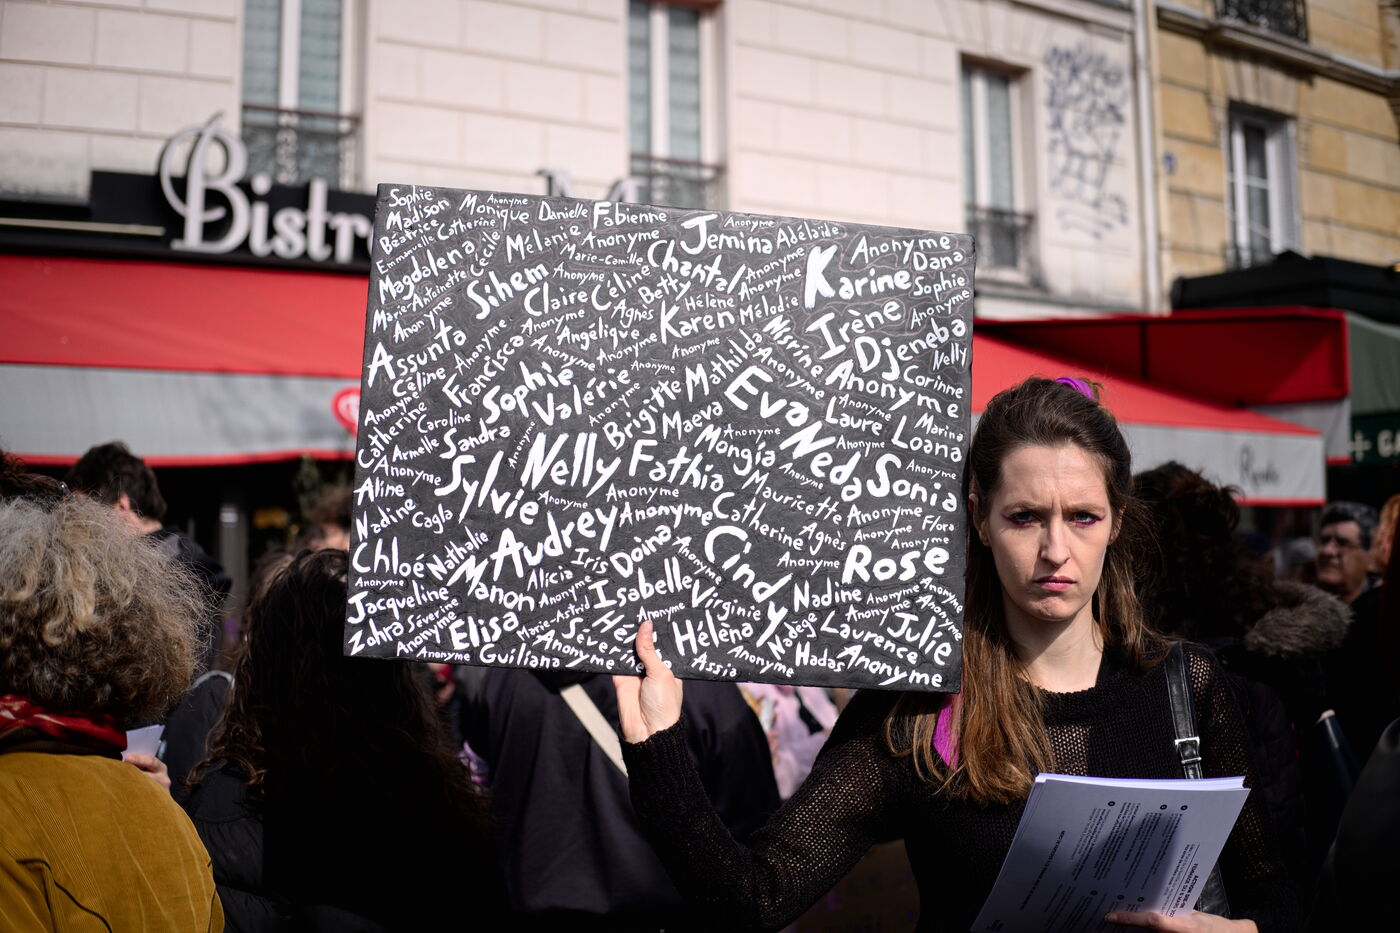 Bistr
Sophie
Madison
Béatrice
Emmanuelle Catherine
Magdalena Cécile
Marie-Antoinette
Anonyme
Assunta
Céline
Anonyme
Catherine
Caroline
Armelle
Anonyme
Aline
Nadine
Cagla
Chloé
Nathalie
Anonyme
Jacqueline
Zohra
Séverine
Anonyme
Anonyme
Monique
Anonyme
Danielle
Fabienne
Mélanie
Anonyme
Marie-Camille
Jemina
Anonyme
Adélaïde
Anonyme
Dana
Sihem
Anonyme
Céline
Chantal
Anonyme
Karine
Sophie
Claire
Agnès
Betty
Hélène
Anonyme
Mélodie
Anonyme
Anonyme
Angélique
Karen
Irène
Djeneba
Nelly
Anonyme
Francisca
Anonyme
Anonyme
Anonyme
Mathilda
Nisrine
Anonyme
Anonyme
Corinne
Sophie
Valérie
Anonyme
Anonyme
Brigitte
Maeva
Eva
Laure
Anonyme
Marina
Loana
Sandra
Anonyme
Nelly
Fathia
Mongia
Anonyme
Neda
Anonyme
Sonia
Anonyme
Sylvie
Anonyme
Anonyme
Anonyme
Mauricette
Anonyme
Flora
Audrey
Anonyme
Catherine
Agnès
Anonyme
Anonyme
Manon
Alicia
Iris
Doina
Anonyme
Cindy
Anonyme
Rose
Anonyme
Isabelle
Virginie
Nadine
Anonyme
Anonyme
Elisa
Marie-Astrid
Anonyme
Héléna
Nadège
Laurence
Anonyme
Julie
Anonyme
Guiliana
Séverine
Anonyme
Assia
Anonyme
Hadas
Anonyme